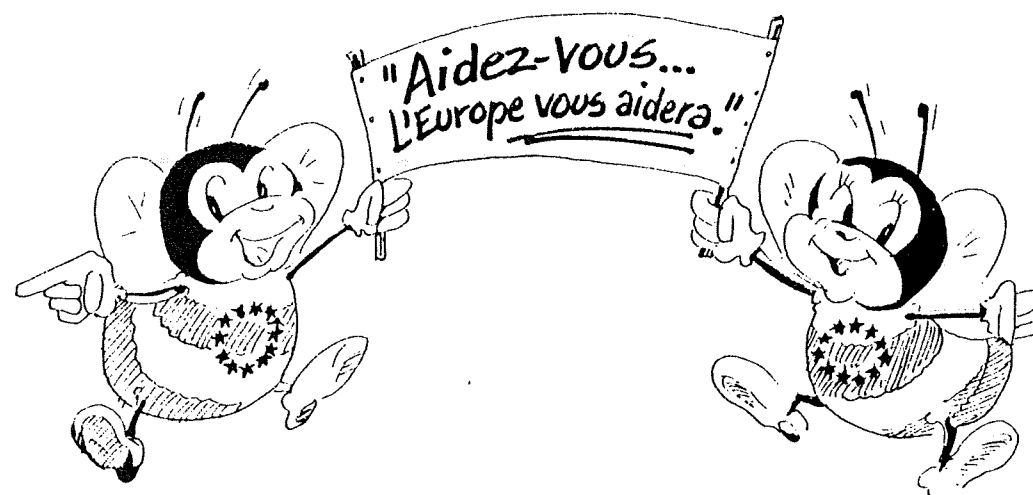 "Aidez-vous...
L'Europe vous aidera."